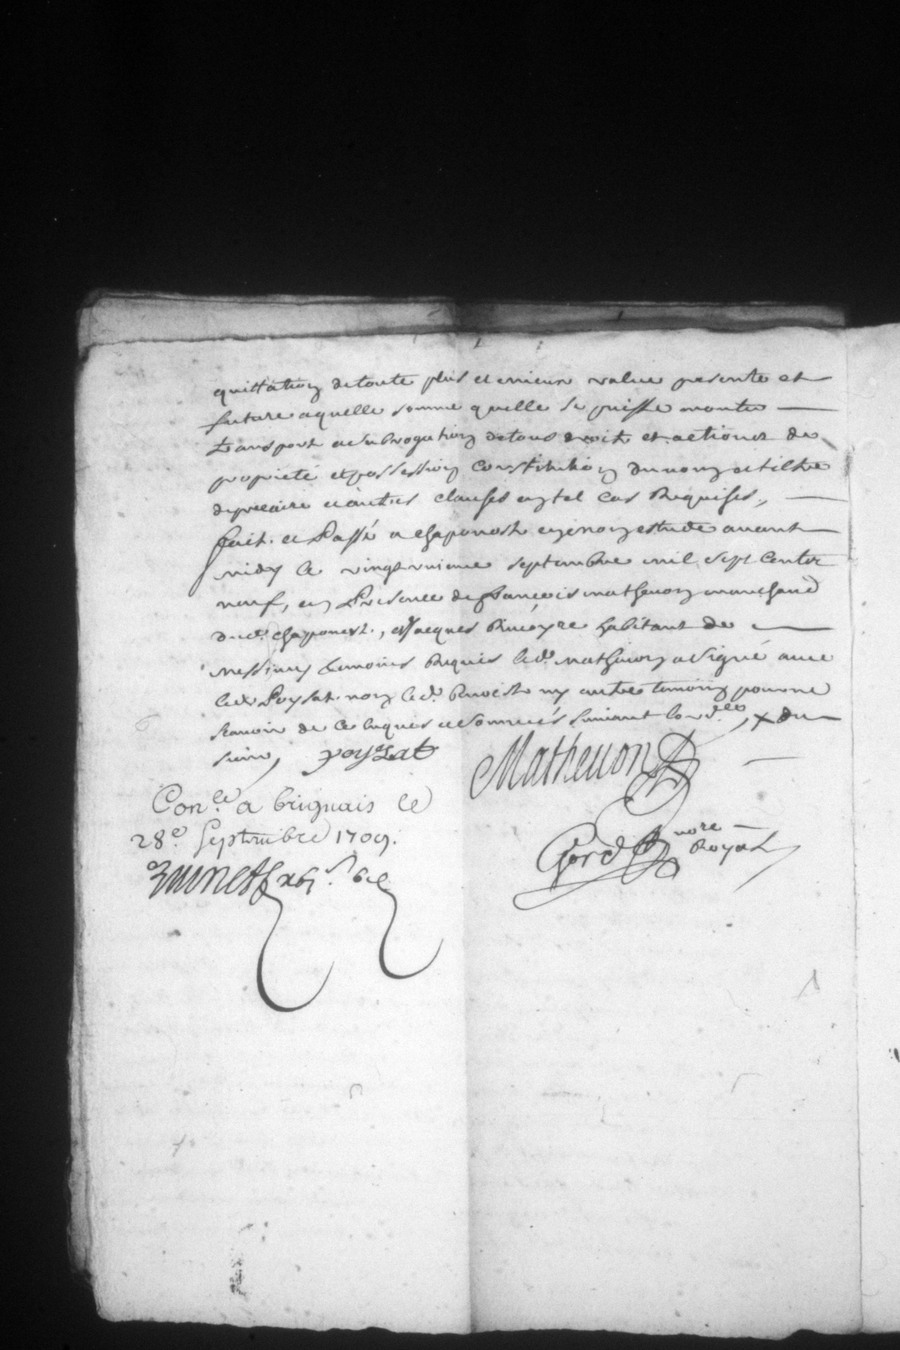 quittation de toute plus et mieux value presente et
future a quelle somme quelle se puisse monter
transport et subrogation de tous droits et actions de
proprieté et possession Constitution du nom et tiltre
de precaire et autres clauses en tel cas Requises,
fait et Passé a chaponost en mon estude avant
midy le vingt septembre mil sept Cents
neuf, en Presence de françois mathevon marchand
dud. chaponost, et Jacques habitant de
Messimy temoins Requis led. Mathevon a signé avec
led. Poyzat non led. ny autre temoing pour ne
scavoir de ce Enquis et sommés suivant lord.ce, x du
sieur, poyzat
Mathevon
Con.lé a brignais le
28e Septembre 1709.
nore
Royal